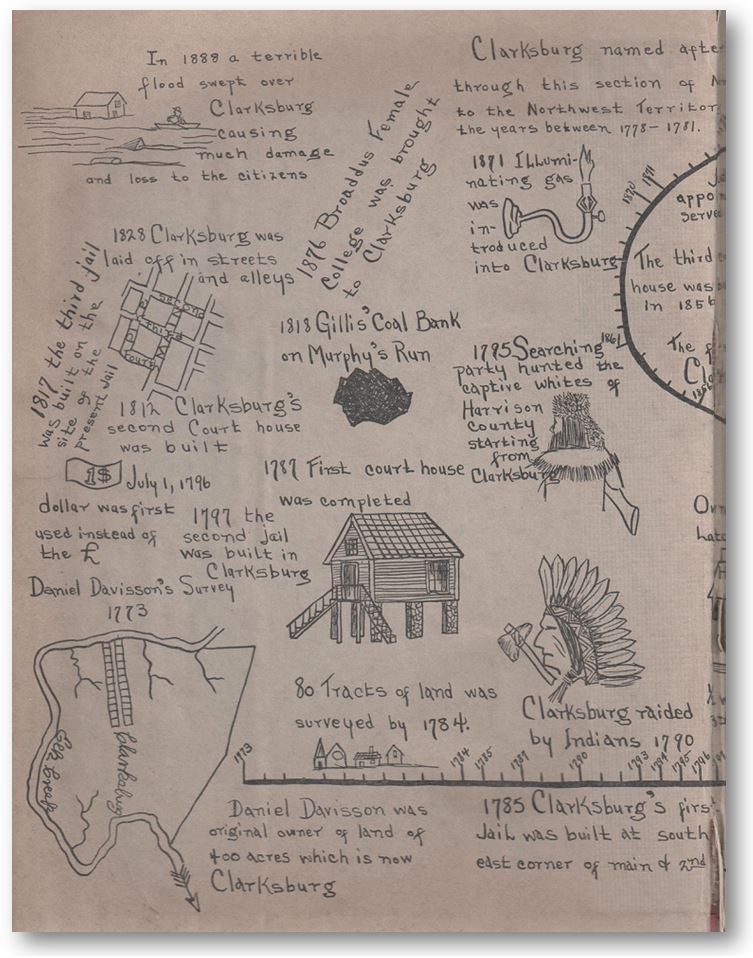 In 1888 a terrible
flood swept over
Clarksburg
causing
much damage
and loss to the citizens
1876 Broaddus Female
College was brought
to Clarksburg
Clarksburg named afte
through this section of
to the Northwest Territor
the years between 1778-1781.
1871 Illumi-
nating gas
was
in-
troduced
into Clarksburg
1870
1871
appoi
serve
The third
house was
In 1856
The
Cl
1861
1856
1828 Clarksburg was
laid off in streets
and alleys
second
third
fourth
1817 the third jail
was built on the
site of the
present jail
1818 Gillis' Coal Bank
on Murphy's Run
1795 Searching
party hunted the
captive whites of
Harrison
county
starting
from
Clarksburg
1812 Clarksburg's
second Court house
was built
1$
July 1, 1796
dollar was first
used instead of
the £
1797 the
second jail
was built in
Clarksburg
1787 First court house
was completed
Daniel Davisson's Survey
1773
Elk Creek
Clarksburg
80 Tracts of land was
surveyed by 1784.
Clarksburg raided
by Indians 1790
1773
1784
1785
1787
1790
1793
1794
1795
1796
Daniel Davisson was
original owner of land of
400 acres which is now
Clarksburg
1785 Clarksburg's firs
Jail was built at south
east corner of main & 2nd